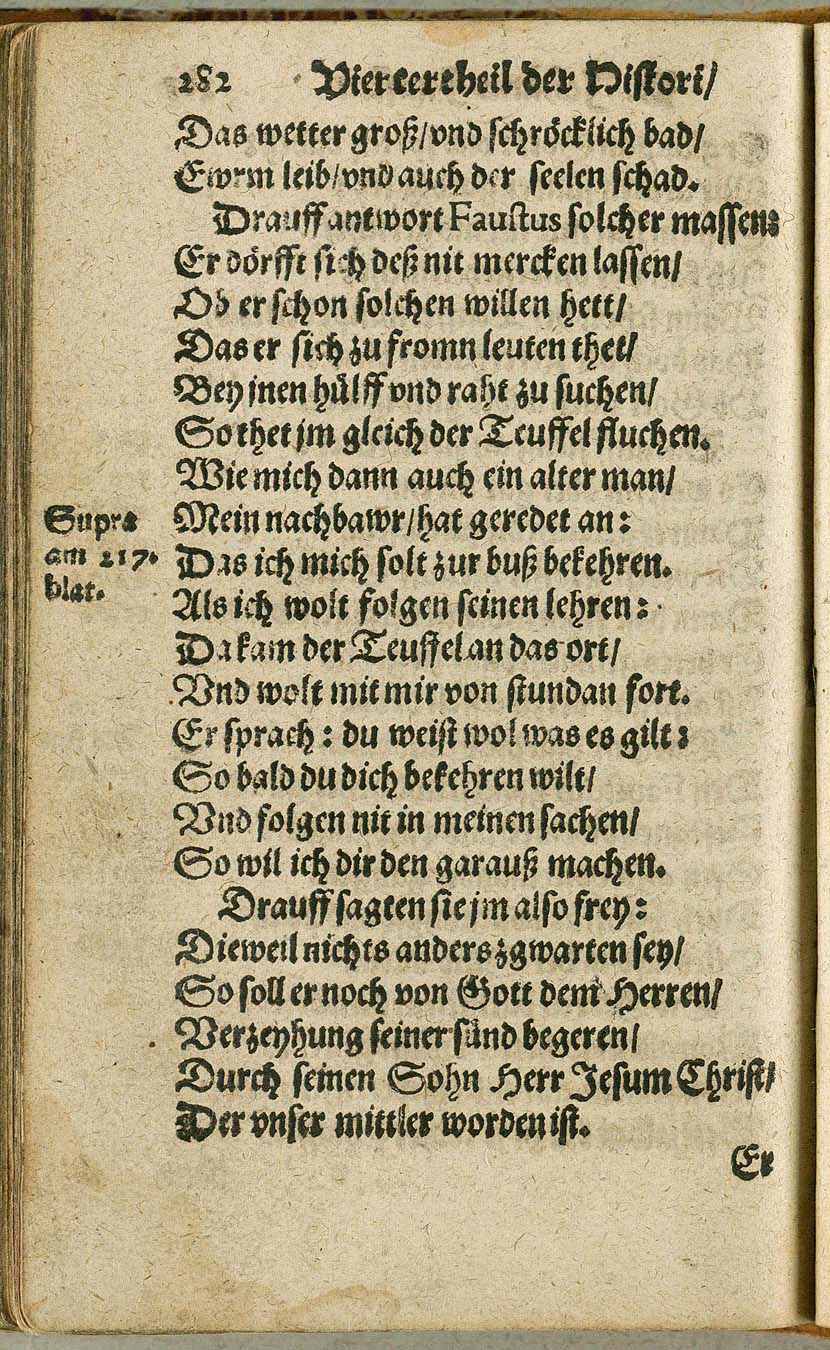 282 Vierter theil der Histori/
Das wetter groß/vnd schröcklich bad/
Ewrm leib/vnd auch der seelen schad.
Drauff antwort Faustus solcher massen:
Er dörfft sich deß nit mercken lassen/
Ob er schon solchen willen hett/
Das er sich zu fromn leuten thet/
Bey jnen hülff vnd raht zu suchen/
So thet jm gleich der Teuffel fluchen.
Wie mich dann auch ein alter man/
Mein nachbawr/hat geredet an:
Das ich mich solt zur buß bekehren.
Als ich wolt folgen seinen lehren:
Da kam der Teuffel an das ort/
Vnd wolt mit mir von stundan fort.
Er sprach: du weist wol was es gilt:
So bald du dich bekehren wilt/
Vnd folgen nit in meinen sachen/
So wil ich dir den garauß machen.
Drauff sagten sie jm also frey:
Dieweil nichts anders zgwarten sey/
So soll er noch von Gott dem Herren/
Verzeyhung seiner sünd begeren/
Durch seinen Sohn Herr Jesum Christ/
Der vnser mittler worden ist.
Er
Supra
am 217.
blat.